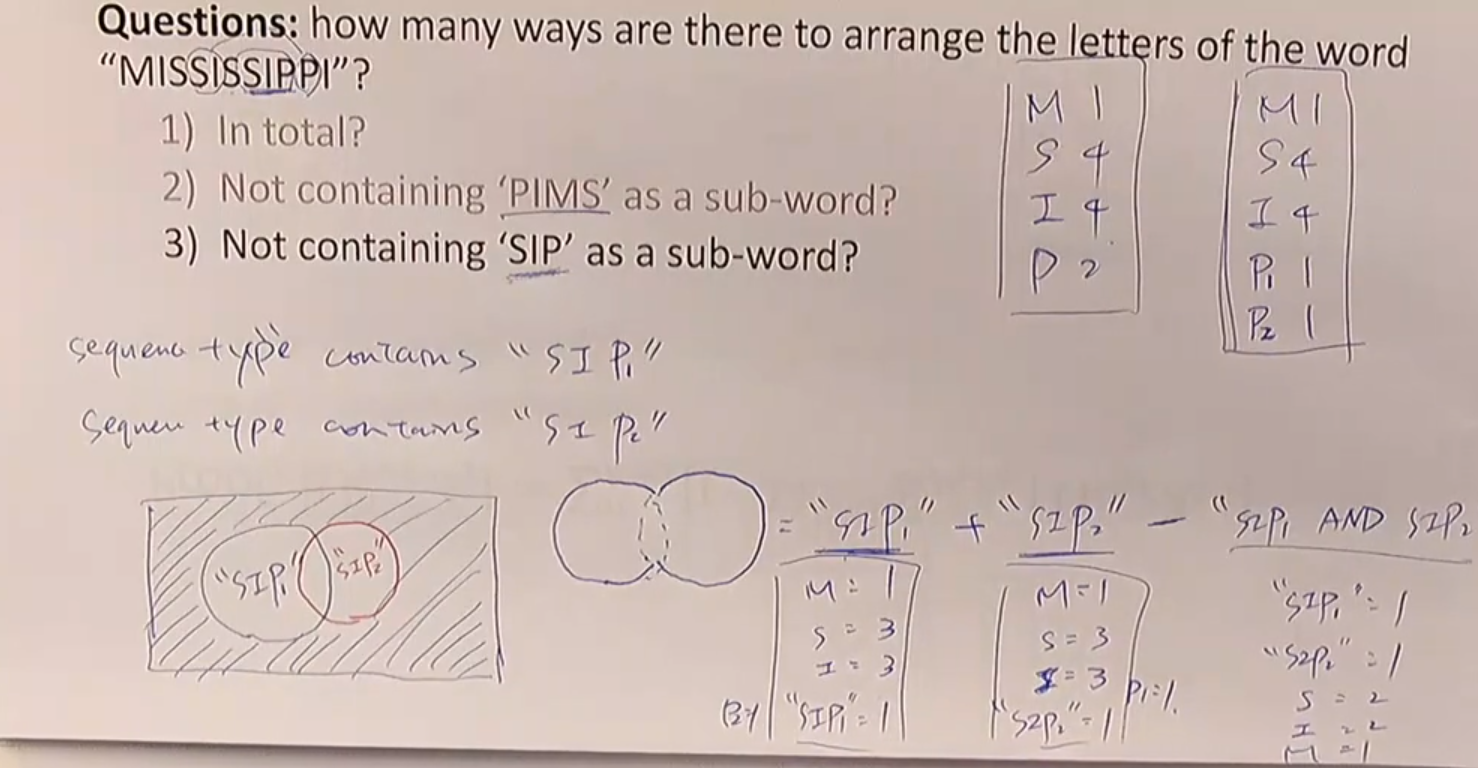 Questions: how many ways are there to arrange the letters of the word
“MISSISSIPPI”?
1) In total?
2) Not containing ‘PIMS’ as a sub-word?
3) Not containing ‘SIP’ as a sub-word?
M 1
S 4
I 4
P 2
M 1
S 4
I 4
P1 1
P2 1
type contains "SIP1"
type contains "SIP2"
"SIP1" "SIP2"
= "SIP1" + "SIP2" - "SIP1 AND SIP2
M = 1
S = 3
I = 3
"SIP1" = 1
M = 1
S = 3
I = 3
"SIP2" = 1
P1 = 1.
"SIP1" = 1
"SIP2" = 1
S = 2
I = 2
M = 1